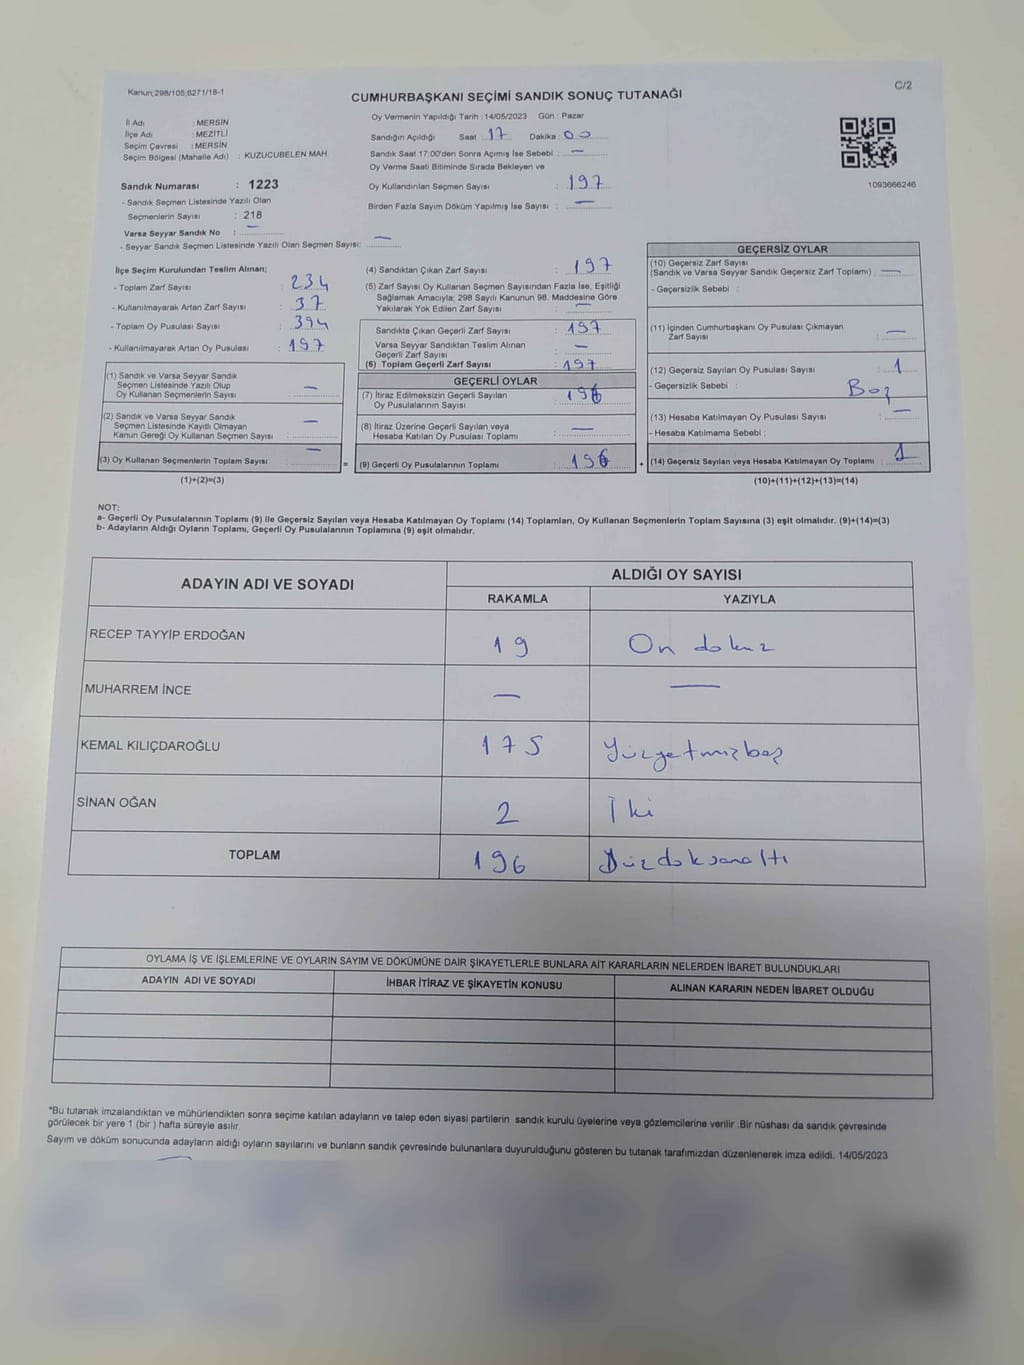 Kanun;298/105;6271/18-1
C/2
CUMHURBAŞKANI SEÇİMİ SANDIK SONUÇ TUTANAĞI
İl Adı : MERSİN
İlçe Adı : MEZİTLİ
Seçim Çevresi : MERSİN
Seçim Bölgesi (Mahalle Adı) : KUZUCUBELEN MAH.
Sandık Numarası : 1223
- Sandık Seçmen Listesinde Yazılı Olan
Seçmenlerin Sayısı : 218
Varsa Seyyar Sandık No : —
- Seyyar Sandık Seçmen Listesinde Yazılı Olan Seçmen Sayısı: —
Oy Vermenin Yapıldığı Tarih : 14/05/2023 Gün : Pazar
Sandığın Açıldığı Saat : 17 Dakika : 00
Sandık Saat 17:00'den Sonra Açımış İse Sebebi : —
Oy Verme Saati Bitiminde Sırada Bekleyen ve
Oy Kullandırılan Seçmen Sayısı : 197
Birden Fazla Sayım Döküm Yapılmış İse Sayısı : —
1093666246
İlçe Seçim Kurulundan Teslim Alınan;
- Toplam Zarf Sayısı : 234
- Kullanılmayarak Artan Zarf Sayısı : 37
- Toplam Oy Pusulası Sayısı : 394
- Kullanılmayarak Artan Oy Pusulası : 197
(1) Sandık ve Varsa Seyyar Sandık
Seçmen Listesinde Yazılı Olup
Oy Kullanan Seçmenlerin Sayısı : —
(2) Sandık ve Varsa Seyyar Sandık
Seçmen Listesinde Kayıtlı Olmayan
Kanun Gereği Oy Kullanan Seçmen Sayısı : —
(3) Oy Kullanan Seçmenlerin Toplam Sayısı : — =
(1)+(2)=(3)
(4) Sandıktan Çıkan Zarf Sayısı : 197
(5) Zarf Sayısı Oy Kullanan Seçmen Sayısından Fazla İse, Eşitliği
Sağlamak Amacıyla; 298 Sayılı Kanunun 98. Maddesine Göre
Yakılarak Yok Edilen Zarf Sayısı : —
Sandıkta Çıkan Geçerli Zarf Sayısı : 197
Varsa Seyyar Sandıktan Teslim Alınan
Geçerli Zarf Sayısı : —
(6) Toplam Geçerli Zarf Sayısı : 197
GEÇERLİ OYLAR
(7) İtiraz Edilmeksizin Geçerli Sayılan
Oy Pusulalarının Sayısı : 196
(8) İtiraz Üzerine Geçerli Sayılan veya
Hesaba Katılan Oy Pusulası Toplamı : —
(9) Geçerli Oy Pusulalarının Toplamı : 196 +
GEÇERSİZ OYLAR
(10) Geçersiz Zarf Sayısı
(Sandık ve Varsa Seyyar Sandık Geçersiz Zarf Toplamı) : —
- Geçersizlik Sebebi :
(11) İçinden Cumhurbaşkanı Oy Pusulası Çıkmayan
Zarf Sayısı : —
(12) Geçersiz Sayılan Oy Pusulası Sayısı : 1
- Geçersizlik Sebebi : Boş
(13) Hesaba Katılmayan Oy Pusulası Sayısı : —
- Hesaba Katılmama Sebebi :
(14) Geçersiz Sayılan veya Hesaba Katılmayan Oy Toplamı : 1
(10)+(11)+(12)+(13)=(14)
NOT:
a- Geçerli Oy Pusulalarının Toplamı (9) ile Geçersiz Sayılan veya Hesaba Katılmayan Oy Toplamı (14) Toplamları, Oy Kullanan Seçmenlerin Toplam Sayısına (3) eşit olmalıdır. (9)+(14)=(3)
b- Adayların Aldığı Oyların Toplamı, Geçerli Oy Pusulalarının Toplamına (9) eşit olmalıdır.
ADAYIN ADI VE SOYADI ALDIĞI OY SAYISI
RAKAMLA YAZIYLA
RECEP TAYYİP ERDOĞAN 19 On dokuz
MUHARREM İNCE — —
KEMAL KILIÇDAROĞLU 175 Yüzyetmişbeş
SİNAN OĞAN 2 İki
TOPLAM 196 Yüzdoksanaltı
OYLAMA İŞ VE İŞLEMLERİNE VE OYLARIN SAYIM VE DÖKÜMÜNE DAİR ŞİKAYETLERLE BUNLARA AİT KARARLARIN NELERDEN İBARET BULUNDUKLARI
ADAYIN ADI VE SOYADI İHBAR İTİRAZ VE ŞİKAYETİN KONUSU ALINAN KARARIN NEDEN İBARET OLDUĞU
*Bu tutanak imzalandıktan ve mühürlendikten sonra seçime katılan adayların ve talep eden siyasi partilerin sandık kurulu üyelerine veya gözlemcilerine verilir .Bir nüshası da sandık çevresinde
görülecek bir yere 1 (bir ) hafta süreyle asılır.
Sayım ve döküm sonucunda adayların aldığı oyların sayılarını ve bunların sandık çevresinde bulunanlara duyurulduğunu gösteren bu tutanak tarafımızdan düzenlenerek imza edildi. 14/05/2023